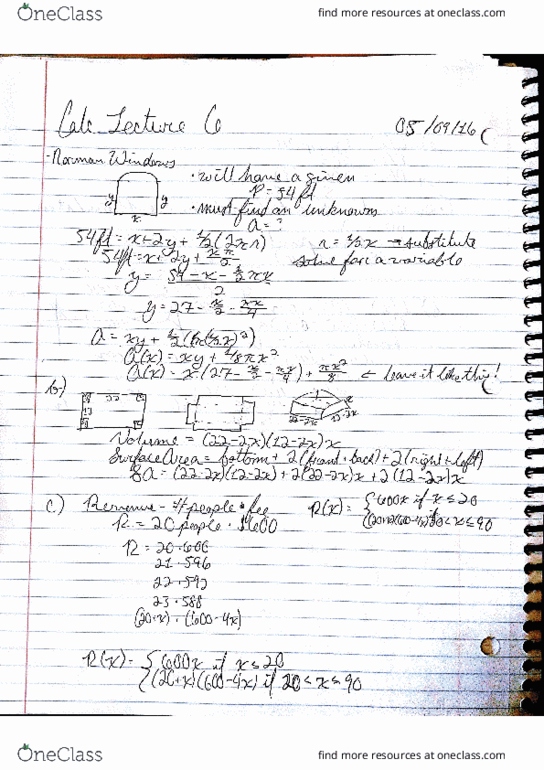 OneClass find more resources at oneclass.com
Calc Lecture 6 05/09/16
- Norman Windows
• will have a given
P = 54 ft
• must find an unknown
a = ?
y y
x
54ft = x + 2y + 1/2(2πr) r = 1/2x → substitute
54ft = x + 2y + xπ/2 solve for a variable
y = 54 - x - 1/2πx
2
y = 27 - x/2 - πx/4
a(x) = xy + 1/8πx²
a(x) = x(27 - x/2 - πx/4) + πx²/8 ← leave it like this!
b.)
22
12
22-2x 12-2x
Volume = (22-2x)(12-2x)x
Surface Area = bottom + 2(front + back) + 2(right + left)
SA = (22-2x)(12-2x) + 2(22-2x)x + 2(12-2x)x
c.) Revenue - # people • fee
R = 20 people • $600
R(x) = { 600x if x ≤ 20
R = 20·600
21·596
22·592
23·588
(20+x)·(600-4x)
R(x) = { 600x if x ≤ 20
{ (20+x)(600-4x) if 20 < x ≤ 90
OneClass find more resources at oneclass.com